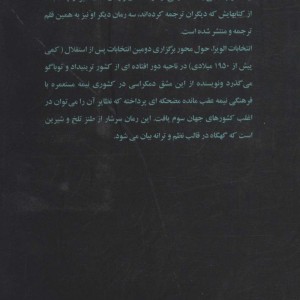 از کتابهایش که دیگران ترجمه کرده‌اند، سه رمان دیگر او نیز به همین قلم
ترجمه و منتشر شده است.
انتخابات الویرا، حول محور برگزاری دومین انتخابات پس از استقلال (کمی
پیش از ۱۹۵۰ میلادی) در ناحیه دور افتاده ای از کشور ترینیداد و توباگو
می‌گذرد ونویسنده از این مشق دمکراسی در کشوری نیمه مستعمره با
فرهنگی نیمه عقب مانده مضحکه ای پرداخته که نظایر آن را می‌توان در
اغلب کشورهای جهان سوم یافت. این رمان سرشار از طنز تلخ و شیرین
است که گهگاه در قالب نظم و ترانه بیان می شود.